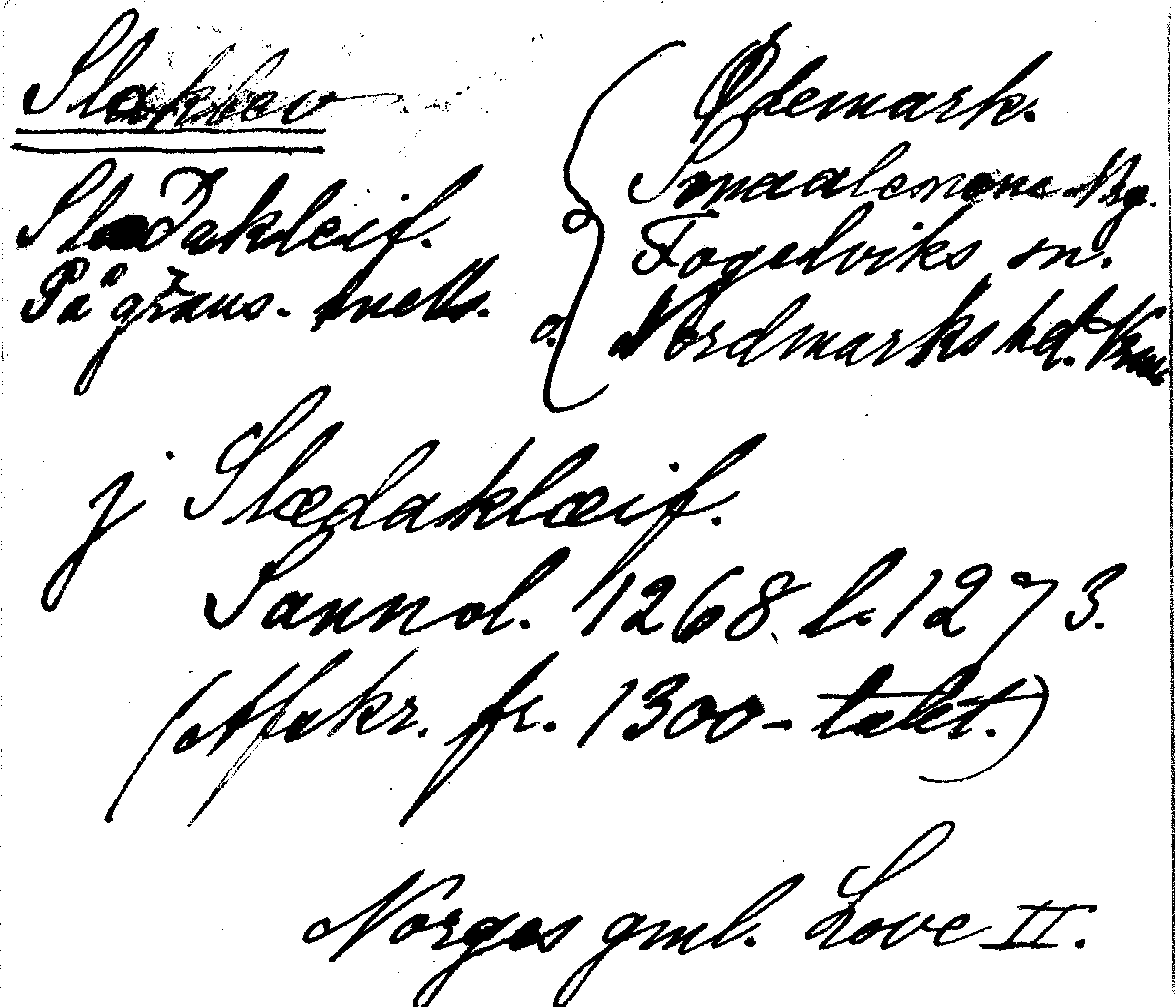 Slaklev
Sladakleif.
På gräns. mells.
Ødemark.
Smaalenene
o. Fogelviks sn.
o. Nordmarks hd.
j Slædaklæif.
Sannol. 1268 l. 1273.
(Afskr. fr. 1300-talet.)
Norges gml. Love II.